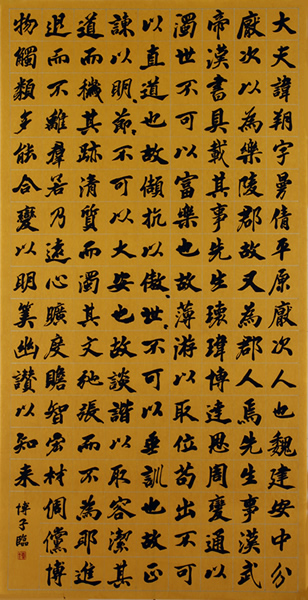 大夫諱朔字曼倩平原厭次人也魏建安中分
厭次以為樂陵郡故又為郡人焉先生事漢武
帝漢書具載其事先生瓌瑋博達思周變通以
濁世不可以富樂也故薄游以取位苟出不可
以直道也故頡抗以傲、世、不可以垂訓也故正
諫以明、節、不可以久安也故談諧以取容潔其
道而穢其跡清質而濁其文弛張而不為耶進
退而不離羣若乃遠心曠度贍智宏材倜儻博
物觸類多能合變以明筭幽讚以知來
子臨